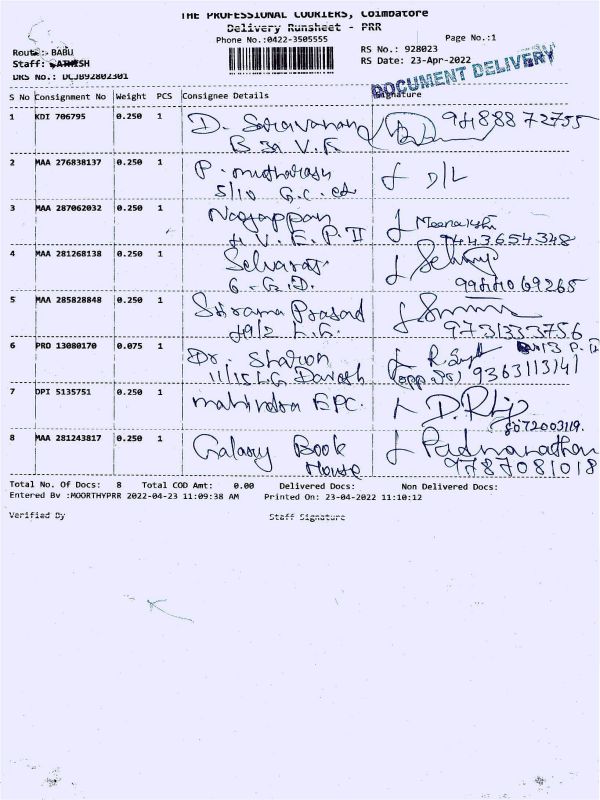 THE PROFESSIONAL COURIERS, Coimbatore
Delivery Runsheet - PRR
Phone No.:0422-3505555
Page No.:1
Route:- BABU
Staff:
RS No.: 928023
RS Date: 23-Apr-2022
DRS No.: DCJB92802301
DOCUMENT DELIVERY
S No Consignment No Weight PCS Consignee Details Signature
1 KDI 706795 0.250 1 D. Saravanan
2 MAA 276838137 0.250 1 P. D/L
5/10 G.C.
3 MAA 287062032 0.250 1 Nagappan Meenakshi
V. E. P. II 9443654348
4 MAA 281268138 0.250 1 Selvaraj
G. G. D.
5 MAA 285828848 0.250 1 Srirama Prasad
L.G. 9731333756
6 PRO 13080170 0.075 1 Dr. Sharon
11/15 L.G 9363113141
7 DPI 5135751 0.250 1 mahindra EPC.
8072003119.
8 MAA 281243817 0.250 1 Galaxy Book Padmanathan
House 9787081018
Total No. Of Docs: 8 Total COD Amt: 0.00 Delivered Docs: Non Delivered Docs:
Entered By :MOORTHYPRR 2022-04-23 11:09:38 AM Printed On: 23-04-2022 11:10:12
Verified By Staff Signature